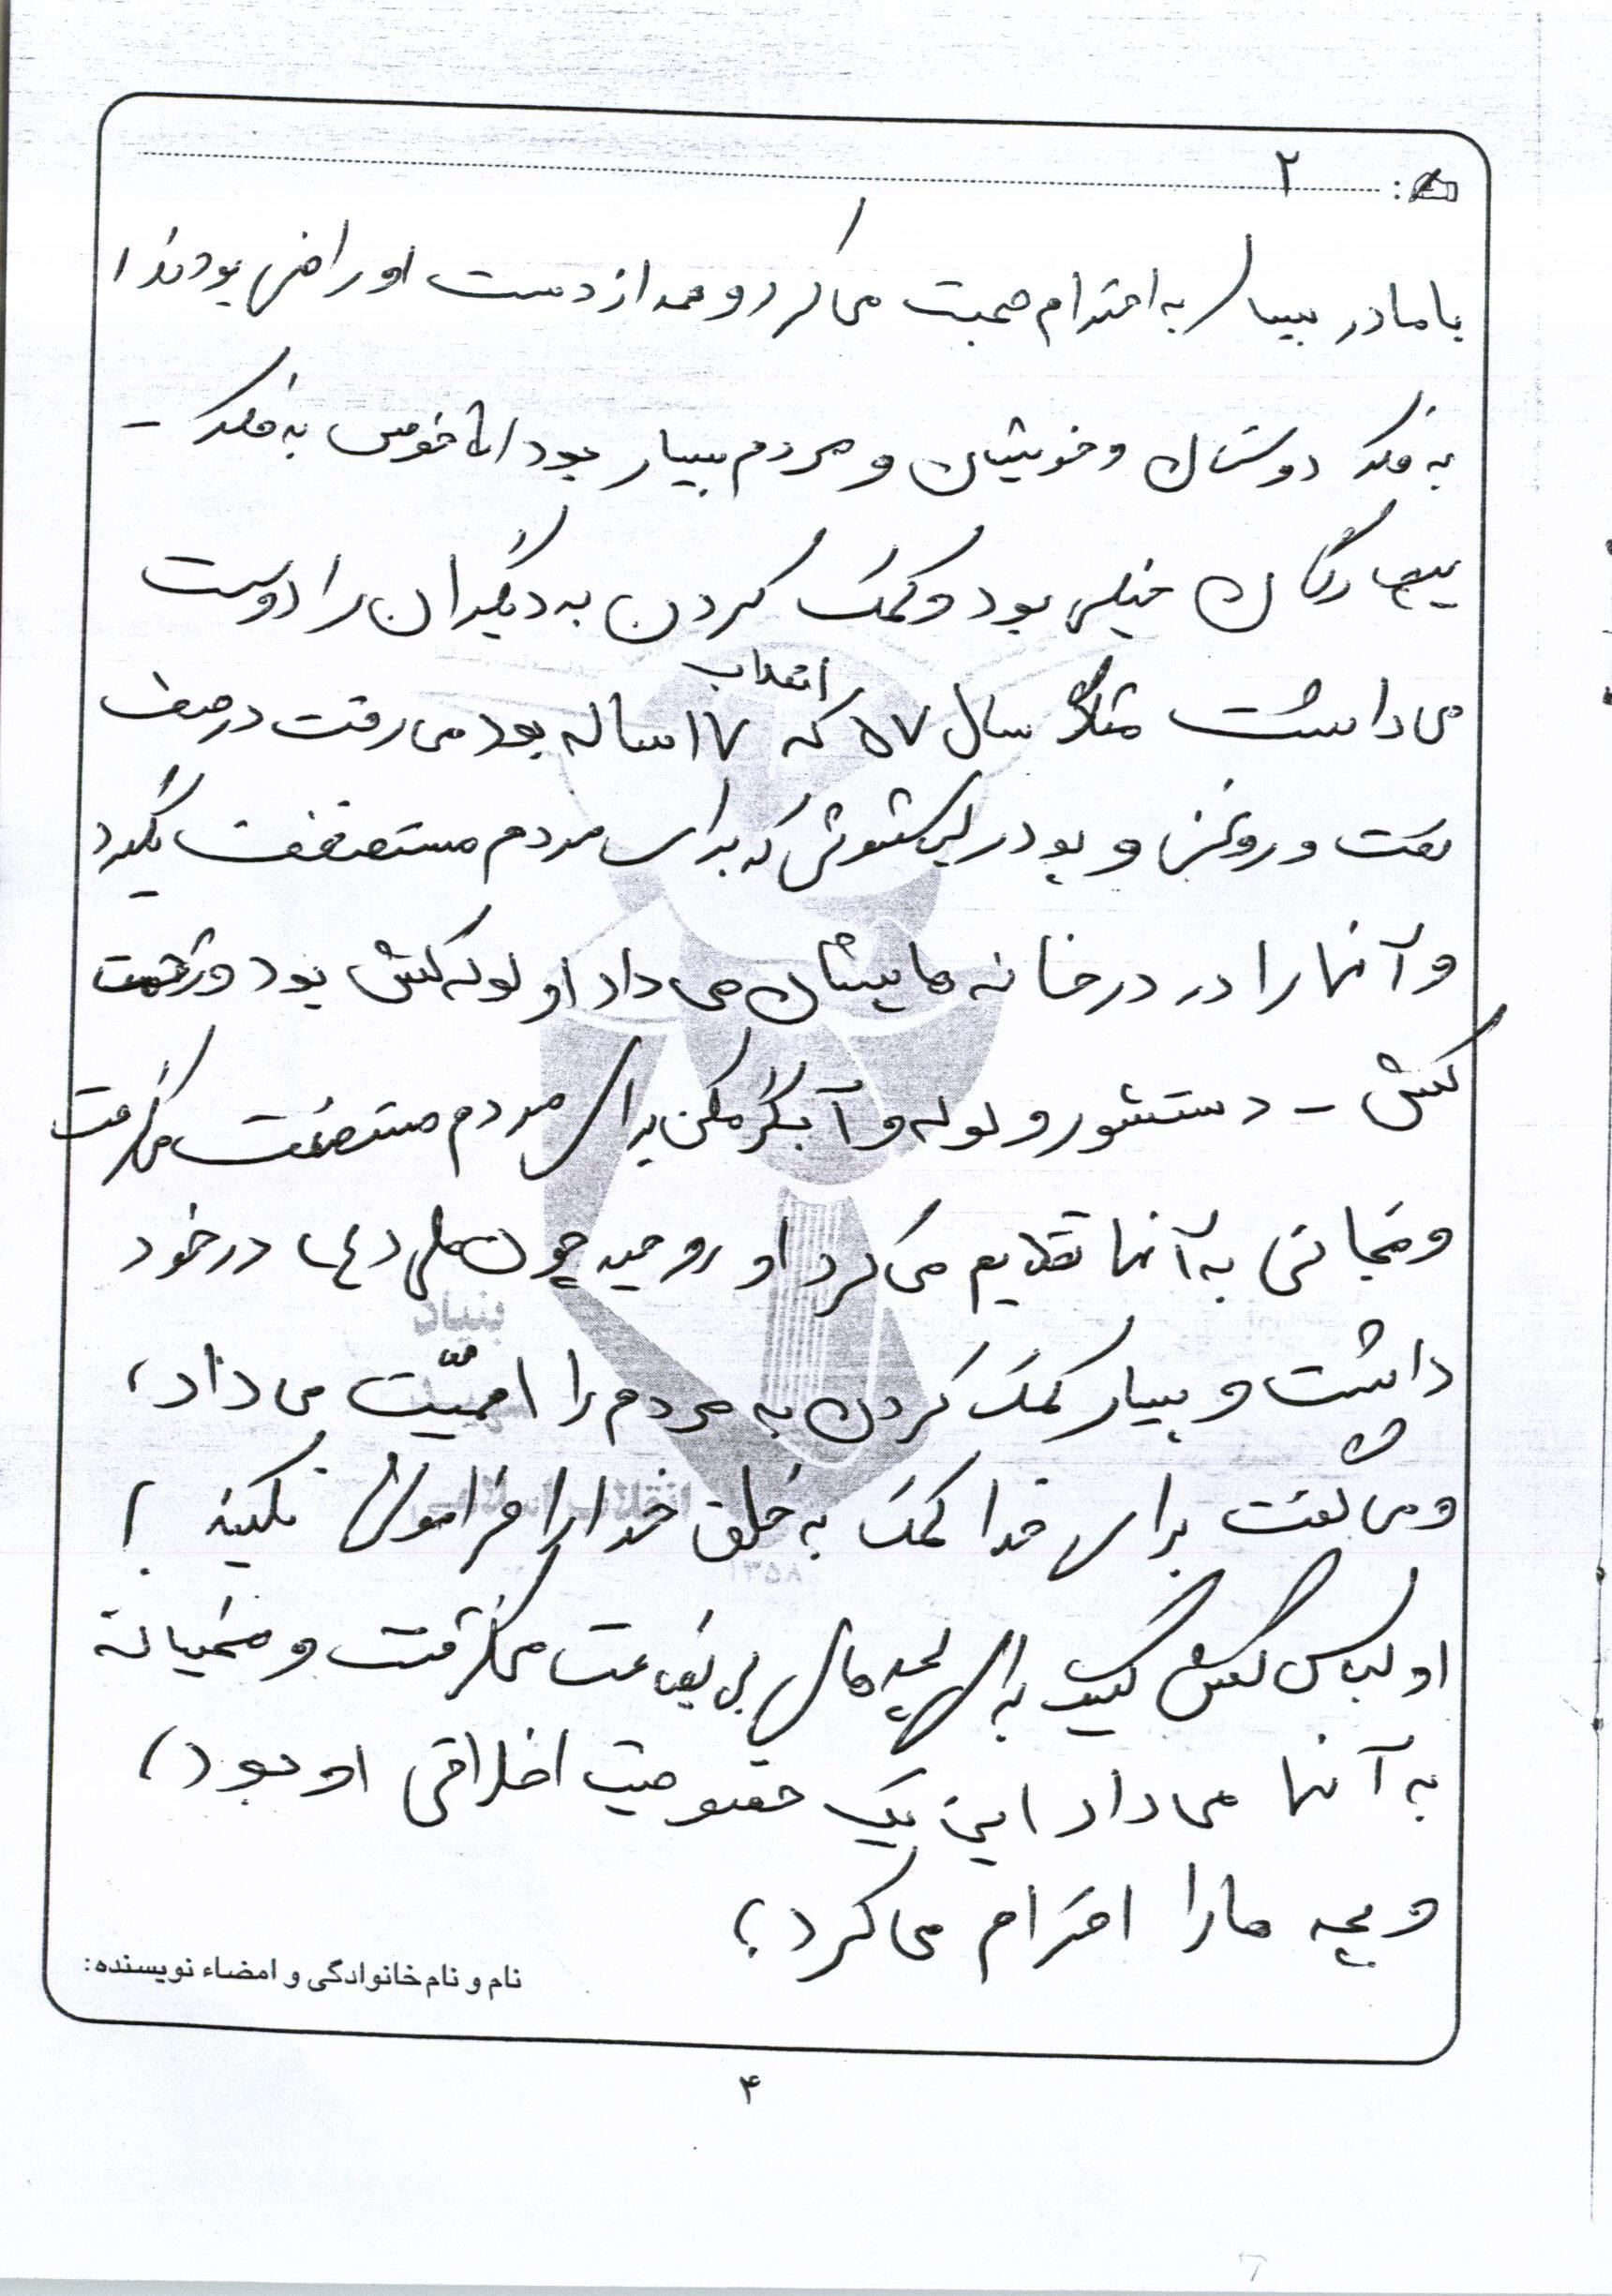 ۲
با مادر بسیار به احترام صحبت می کرد و همه از دست او راضی بودند
به فکر دوستان و خویشان و مردم بسیار بود اما خودش به فکر -
بیچارگان خیلی بود و کمک کردن به دیگران را دوست
می داشت مثلاً سال ۵۷ انقلاب که ۱۷ ساله بود می رفت در صف
نفت و روغن و پودر لباسشوئی که برای مردم مستضعف بگیرد
و آنها را در در خانه هایشان می داد او لوله کش بود و زحمت
کش - دستشور و لوله و آبگرمکن برای مردم مستضعف می گرفت
و مجانی به آنها تقدیم می کرد او روحیه چون علی (ع) در خود
داشت و بسیار کمک کردن به مردم را اهمیّت می داد،
و می گفت برای خدا کمک به خلق خدا را فراموش نکنید ؛
او لباس کفش کیف برای بچه های بی بضاعت می گرفت و مخفیانه
به آنها می داد این یک خصوصیت اخلاقی او بود)
و بچه ها را احترام می کرد ؛
نام و نام خانوادگی و امضاء نویسنده:
بنیاد
انقلاب اسلامی
۱۳۵۸
۴